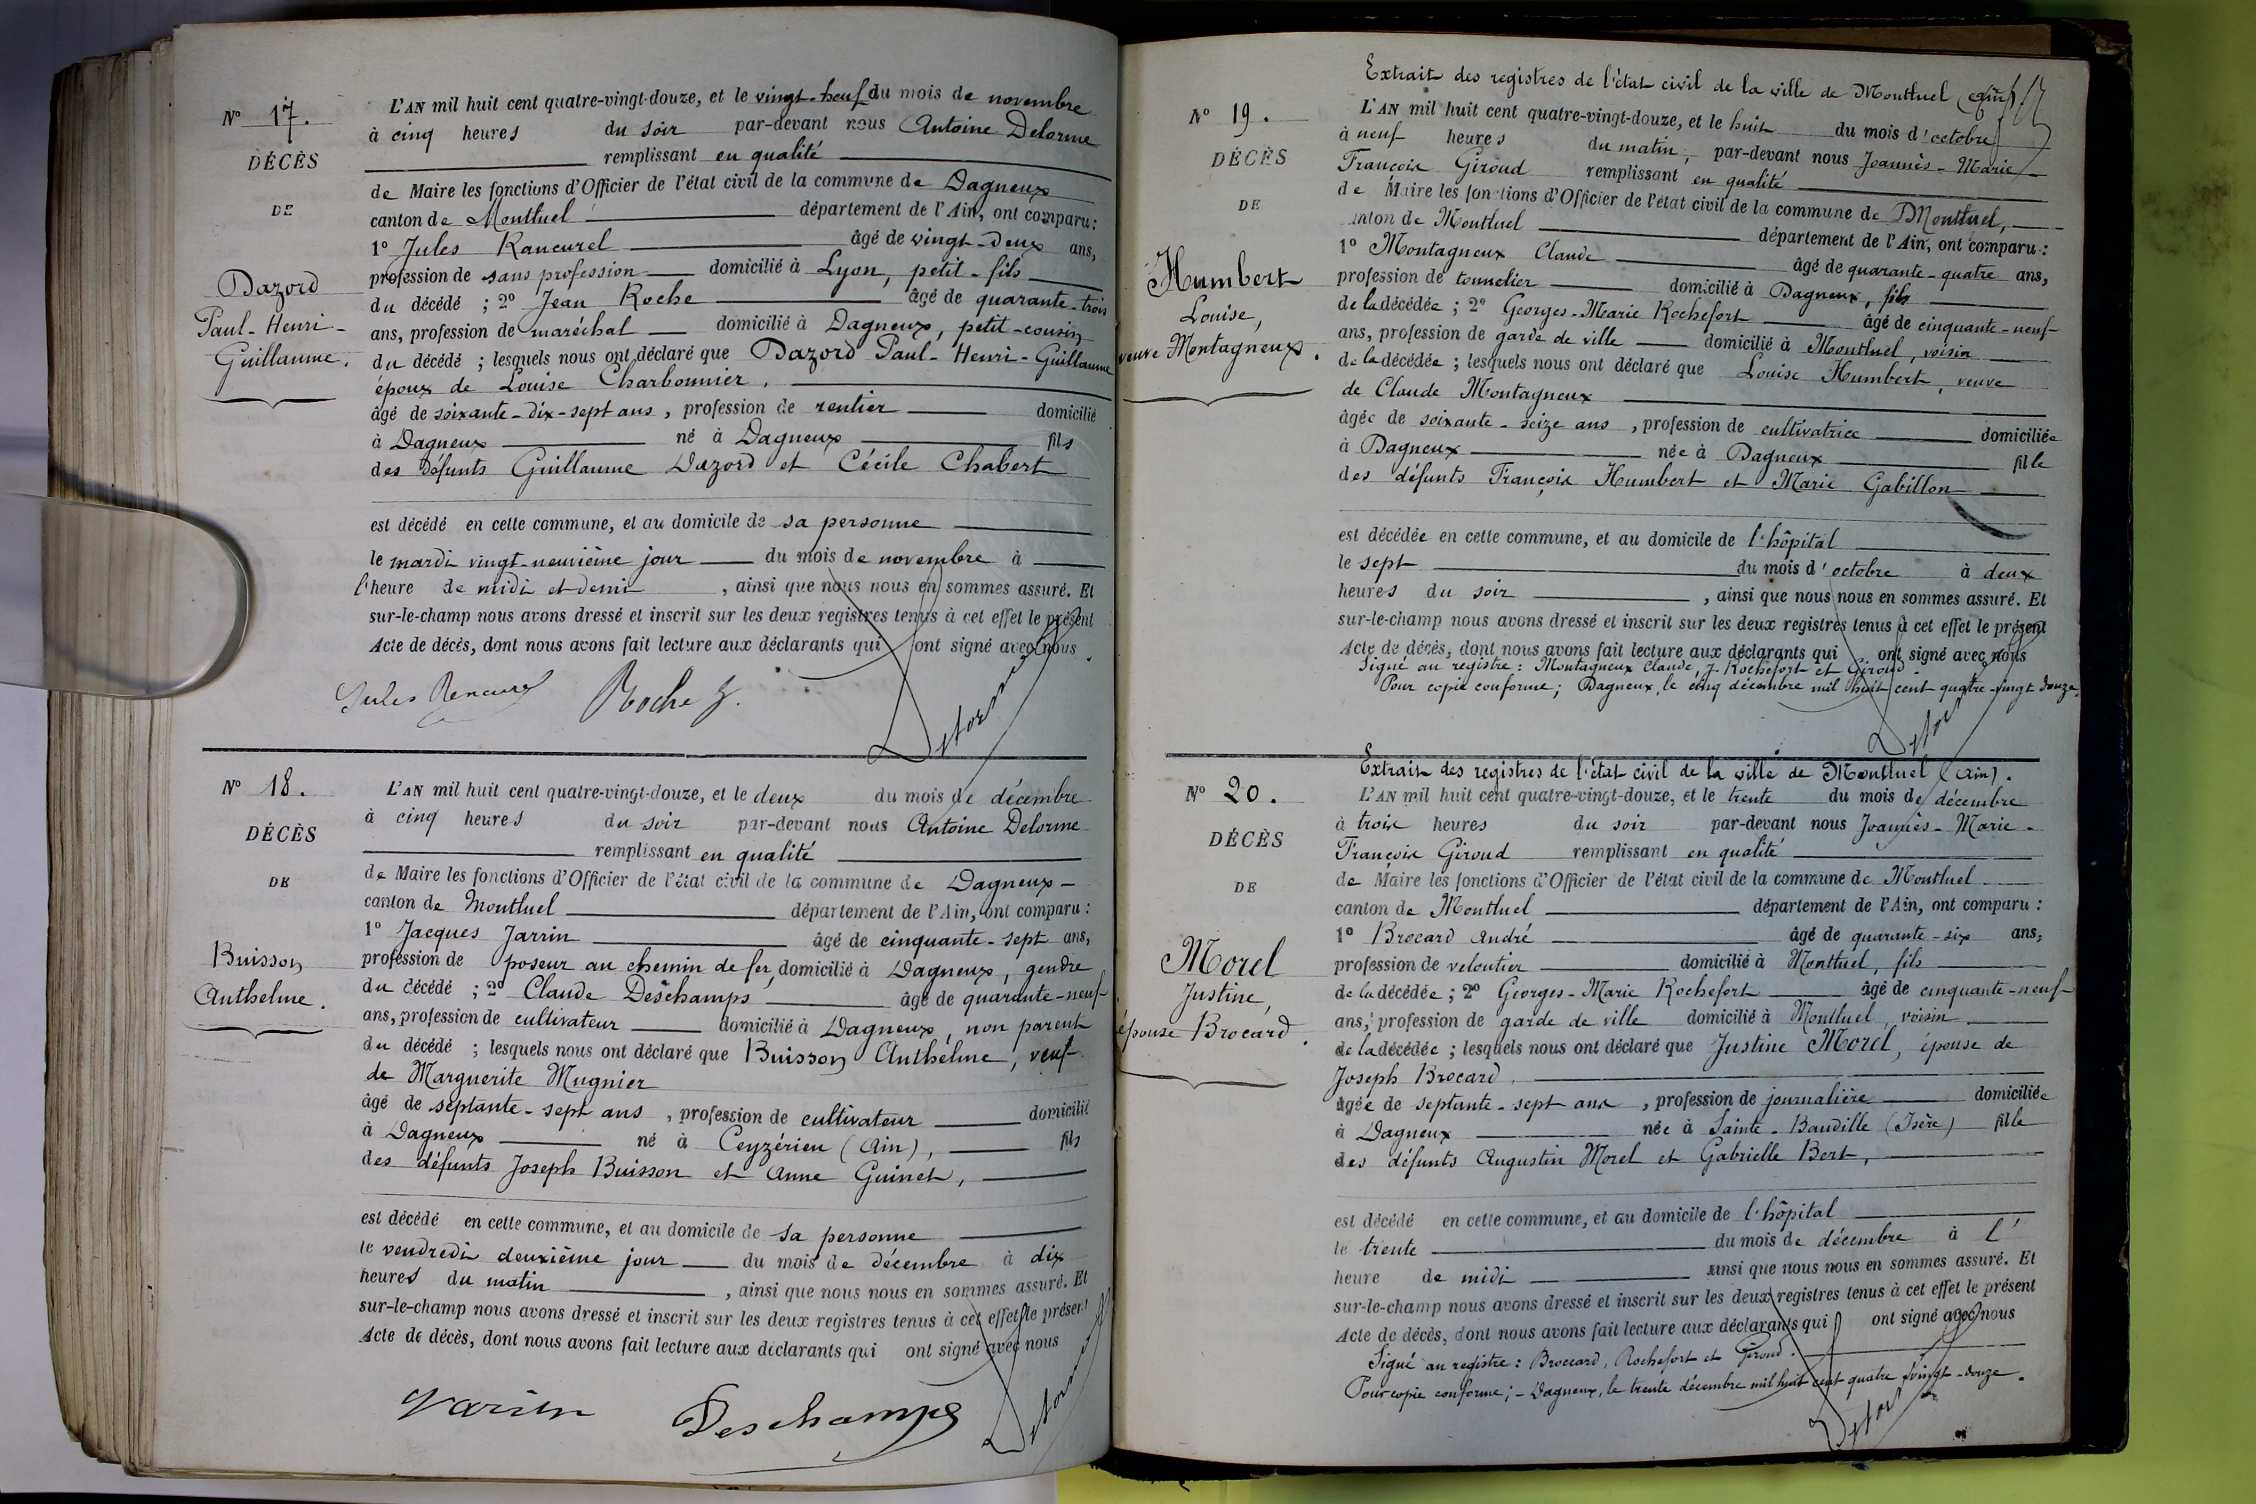 Nº 17.
DÉCÈS
DE
Dazord
Paul-Henri-
Guillaume.
L'AN mil huit cent quatre-vingt-douze, et le vingt-neuf du mois de novembre
à cinq heures du soir par-devant nous Antoine Delorme
remplissant en qualité
de Maire les fonctions d'Officier de l'état civil de la commune de Dagneux
canton de Montluel département de l'Ain, ont comparu :
1º Jules Rancurel âgé de vingt-deux ans,
profession de sans profession domicilié à Lyon, petit-fils
du décédé ; 2º Jean Roche âgé de quarante-trois
ans, profession de maréchal domicilié à Dagneux, petit-cousin
du décédé ; lesquels nous ont déclaré que Dazord Paul-Henri-Guillaume
époux de Louise Charbonnier.
âgé de soixante-dix-sept ans, profession de rentier domicilié
à Dagneux né à Dagneux fils
des défunts Guillaume Dazord et Cécile Chabert
est décédé en cette commune, et au domicile de sa personne
le mardi vingt-neuvième jour du mois de novembre à
l'heure de midi et demi, ainsi que nous nous en sommes assuré. Et
sur-le-champ nous avons dressé et inscrit sur les deux registres tenus à cet effet le présent
Acte de décès, dont nous avons fait lecture aux déclarants qui ont signé avec nous.
Jules Rencurel Roche J. Delorme
Nº 18.
DÉCÈS
DE
Buisson
Anthelme.
L'AN mil huit cent quatre-vingt-douze, et le deux du mois de décembre
à cinq heures du soir par-devant nous Antoine Delorme
remplissant en qualité
de Maire les fonctions d'Officier de l'état civil de la commune de Dagneux
canton de Montluel département de l'Ain, ont comparu :
1º Jacques Jarrin âgé de cinquante-sept ans,
profession de poseur au chemin de fer, domicilié à Dagneux, gendre
du décédé ; 2º Claude Deschamps âgé de quarante-neuf
ans, profession de cultivateur domicilié à Dagneux, non parent
du décédé ; lesquels nous ont déclaré que Buisson Anthelme, veuf
de Marguerite Mugnier
âgé de septante-sept ans, profession de cultivateur domicilié
à Dagneux né à Ceyzérieu (Ain), fils
des défunts Joseph Buisson et Anne Guinet,
est décédé en cette commune, et au domicile de sa personne
le vendredi deuxième jour du mois de décembre à dix
heures du matin, ainsi que nous nous en sommes assuré. Et
sur-le-champ nous avons dressé et inscrit sur les deux registres tenus à cet effet le présent
Acte de décès, dont nous avons fait lecture aux déclarants qui ont signé avec nous
Jarrin Deschamps Delorme
Extrait des registres de l'état civil de la ville de Montluel (Ain)
Nº 19.
DÉCÈS
DE
Humbert
Louise,
veuve Montagneux.
L'AN mil huit cent quatre-vingt-douze, et le huit du mois d'octobre
à neuf heures du matin, par-devant nous Joannès-Marie-
François Giroud remplissant en qualité
de Maire les fonctions d'Officier de l'état civil de la commune de Montluel,
canton de Montluel département de l'Ain, ont comparu :
1º Montagneux Claude âgé de quarante-quatre ans,
profession de tonnelier domicilié à Dagneux, fils
de la décédée ; 2º Georges-Marie Rochefort âgé de cinquante-neuf
ans, profession de garde de ville domicilié à Montluel, voisin
de la décédée ; lesquels nous ont déclaré que Louise Humbert, veuve
de Claude Montagneux
âgée de soixante-seize ans, profession de cultivatrice domiciliée
à Dagneux née à Dagneux fille
des défunts François Humbert et Marie Gabillon
est décédée en cette commune, et au domicile de l'hôpital
le sept du mois d'octobre à deux
heures du soir, ainsi que nous nous en sommes assuré. Et
sur-le-champ nous avons dressé et inscrit sur les deux registres tenus à cet effet le présent
Acte de décès, dont nous avons fait lecture aux déclarants qui ont signé avec nous
Signé au registre : Montagneux Claude, J. Rochefort et Giroud.
Pour copie conforme ; Dagneux, le cinq décembre mil huit cent quatre-vingt douze.
Delorme
Extrait des registres de l'état civil de la ville de Montluel (Ain).
Nº 20.
DÉCÈS
DE
Morel
Justine,
épouse Brocard.
L'AN mil huit cent quatre-vingt-douze, et le trente du mois de décembre
à trois heures du soir par-devant nous Joannès-Marie-
François Giroud remplissant en qualité
de Maire les fonctions d'Officier de l'état civil de la commune de Montluel
canton de Montluel département de l'Ain, ont comparu :
1º Brocard André âgé de quarante-six ans,
profession de veloutier domicilié à Montluel, fils
de la décédée ; 2º Georges-Marie Rochefort âgé de cinquante-neuf
ans, profession de garde de ville domicilié à Montluel, voisin
de la décédée ; lesquels nous ont déclaré que Justine Morel, épouse de
Joseph Brocard.
âgée de septante-sept ans, profession de journalière domiciliée
à Dagneux née à Sainte-Baudille (Isère) fille
des défunts Augustin Morel et Gabrielle Bert,
est décédé en cette commune, et au domicile de l'hôpital
le trente du mois de décembre à l'
heure de midi ainsi que nous nous en sommes assuré. Et
sur-le-champ nous avons dressé et inscrit sur les deux registres tenus à cet effet le présent
Acte de décès, dont nous avons fait lecture aux déclarants qui ont signé avec nous
Signé au registre : Broccard, Rochefort et Giroud.
Pour copie conforme ; - Dagneux, le trente décembre mil huit cent quatre vingt-douze.
Delorme